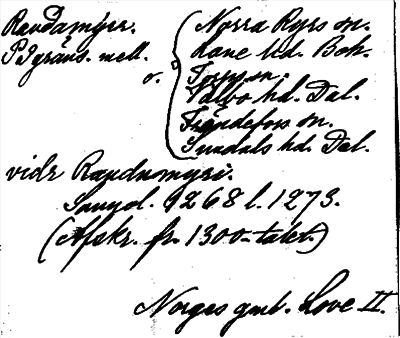 Raudamýrr.
På gräns. mell.
o.
Norra Ryrs sn.
Lane hd. Boh.
Torps sn.
Valbo hd. Dal.
Frändefors sn.
Sundals hd. Dal.
viðr Raudumyri.
Sannol. 1268 l. 1273.
(Afskr. fr. 1300-talet.)
Norges gml. Love II.